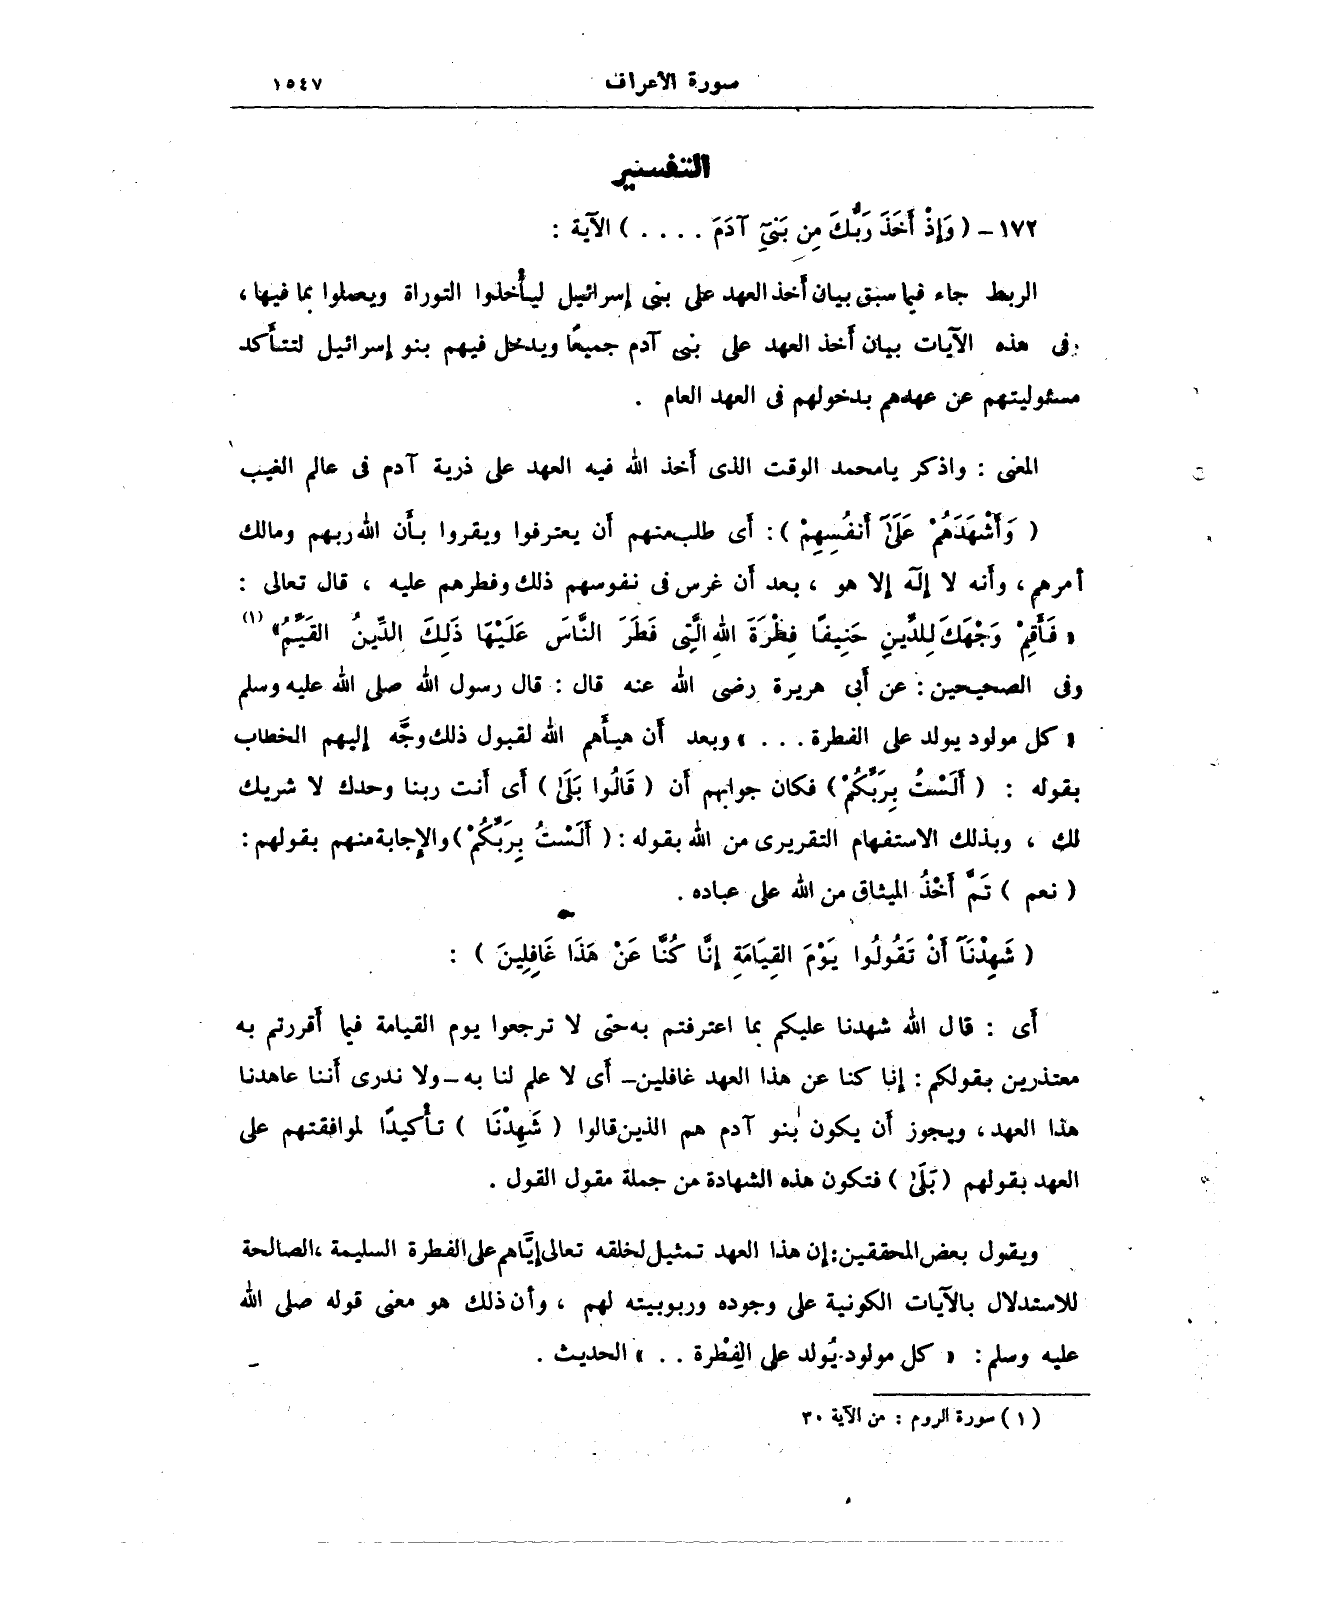 سورة الأعراف ١٥٤٧
التفسير
١٧٢ – ( وَإِذْ أَخَذَ رَبُّكَ مِن بَنِيٓ آدَمَ . . . . ) الآية :
الربط جاء فيما سبق بيان أخذ العهد على بنى إسرائيل ليأخذوا التوراة ويعملوا بما فيها ،
وفى هذه الآيات بيان أخذ العهد على بنى آدم جميعًا ويدخل فيهم بنو إسرائيل لتتأكد
مسئوليتهم عن عهدهم بدخولهم فى العهد العام .
المعنى : واذكر يامحمد الوقت الذى أخذ الله فيه العهد على ذرية آدم فى عالم الغيب
( وَأَشْهَدَهُمْ عَلَىٰٓ أَنفُسِهِمْ ) : أى طلب منهم أن يعترفوا ويقروا بأن الله ربهم ومالك
أمرهم ، وأنه لا إلٓه إلا هو ، بعد أن غرس فى نفوسهم ذلك وفطرهم عليه ، قال تعالى :
« فَأَقِمْ وَجْهَكَ لِلدِّينِ حَنِيفًا فِطْرَةَ اللهِ الَّتِى فَطَرَ النَّاسَ عَلَيْهَا ذَلِكَ الدِّينُ القَيِّمُ » (١)
وفى الصحيحين : عن أبى هريرة رضى الله عنه قال : قال رسول الله صلى الله عليه وسلم
« كل مولود يولد على الفطرة . . . » وبعد أن هيأهم الله لقبول ذلك وجَّه إليهم الخطاب
بقوله : ( أَلَسْتُ بِرَبِّكُمْ ) فكان جوابهم أن ( قَالُوا بَلَىٰ ) أى أنت ربنا وحدك لا شريك
لك ، وبذلك الاستفهام التقريرى من الله بقوله : ( أَلَسْتُ بِرَبِّكُمْ ) والإجابة منهم بقولهم :
( نعم ) تَمَّ أَخْذُ الميثاق من الله على عباده .
( شَهِدْنَآ أَنْ تَقُولُوا يَوْمَ القِيَامَةِ إِنَّا كُنَّا عَنْ هَذَا غَافِلِينَ ) :
أى : قال الله شهدنا عليكم بما اعترفتم به حتى لا ترجعوا يوم القيامة فيما أقررتم به
معتذرين بقولكم : إنا كنا عن هذا العهد غافلين – أى لا علم لنا به – ولا ندرى أننا عاهدنا
هذا العهد ، ويجوز أن يكون بنو آدم هم الذين قالوا ( شَهِدْنَا ) تأكيدًا لموافقتهم على
العهد بقولهم ( بَلَىٰ ) فتكون هذه الشهادة من جملة مقول القول .
ويقول بعض المحققين : إن هذا العهد تمثيل لخلقه تعالى إيَّاهم على الفطرة السليمة ، الصالحة
للاستدلال بالآيات الكونية على وجوده وربوبيته لهم ، وأن ذلك هو معنى قوله صلى الله
عليه وسلم : « كل مولود يُولد على الفِطْرة . . » الحديث .
( ١ ) سورة الروم : من الآية ٣٠